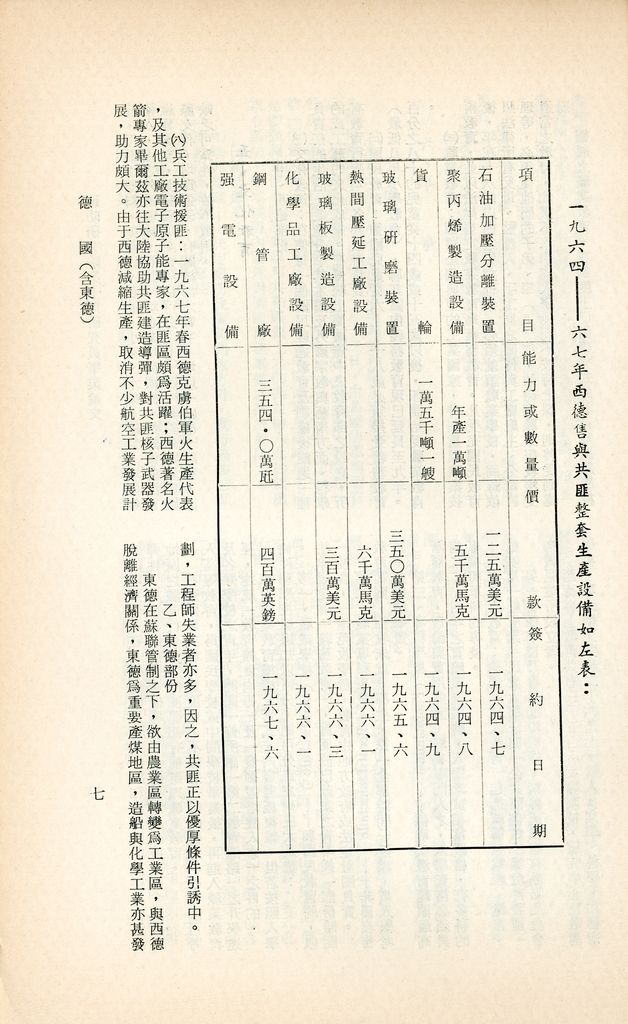 一九六四——六七年西德售與共匪整套生產設備如左表：
項目 能力或數量 價款 簽約日期
石油加壓分離裝置 一二五萬美元 一九六四、七
聚丙烯製造設備 年產一萬噸 五千萬馬克 一九六四、八
貨輪 一萬五千噸一艘 一九六四、九
玻璃研磨裝置 三五〇萬美元 一九六五、六
熱間壓延工廠設備 六千萬馬克 一九六六、一
玻璃板製造設備 三百萬美元 一九六六、三
化學品工廠設備 一九六六、一
鋼管廠 三五四·〇萬瓩 四百萬英鎊 一九六七、六
强電設備
㈥兵工技術援匪：一九六七年春西德克虜伯軍火生產代表
，及其他工廠電子原子能專家，在匪區頗爲活躍；西德著名火
箭專家畢爾茲亦往大陸協助共匪建造導彈，對共匪核子武器發
展，助力頗大。由于西德減縮生產，取消不少航空工業發展計
劃，工程師失業者亦多，因之，共匪正以優厚條件引誘中。
乙、東德部份
東德在蘇聯管制之下，欲由農業區轉變爲工業區，與西德
脫離經濟關係，東德爲重要產煤地區，造船與化學工業亦甚發
德國（含東德）
七